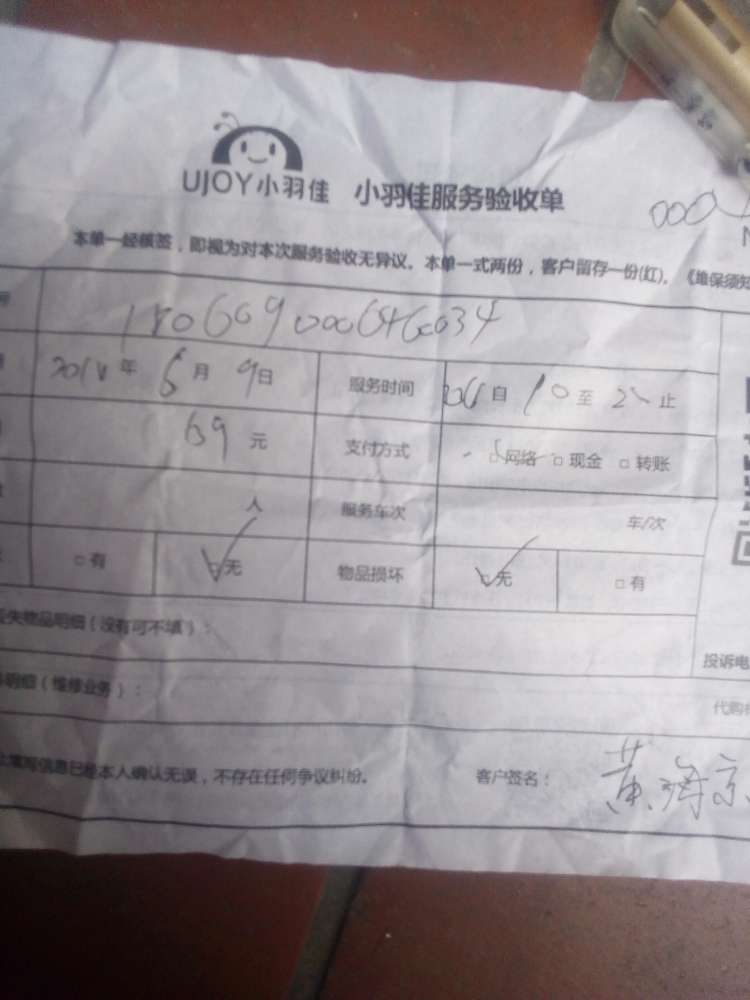 UJOY小羽佳 小羽佳服务验收单
000
本单一经核签,即视为对本次服务验收无异议。本单一式两份,客户留存一份(红)。《维保须知
年 6月9日 服务时间 自 10 至 止
69元 支付方式 □网络 □现金 □转账
人 服务车次 车/次
□有 □无 物品损坏 □无 □有
失物品明细(没有可不填):
投诉电
明细(维修业务):
代购
填写信息已经本人确认无误,不存在任何争议纠纷。 客户签名: 黄海京